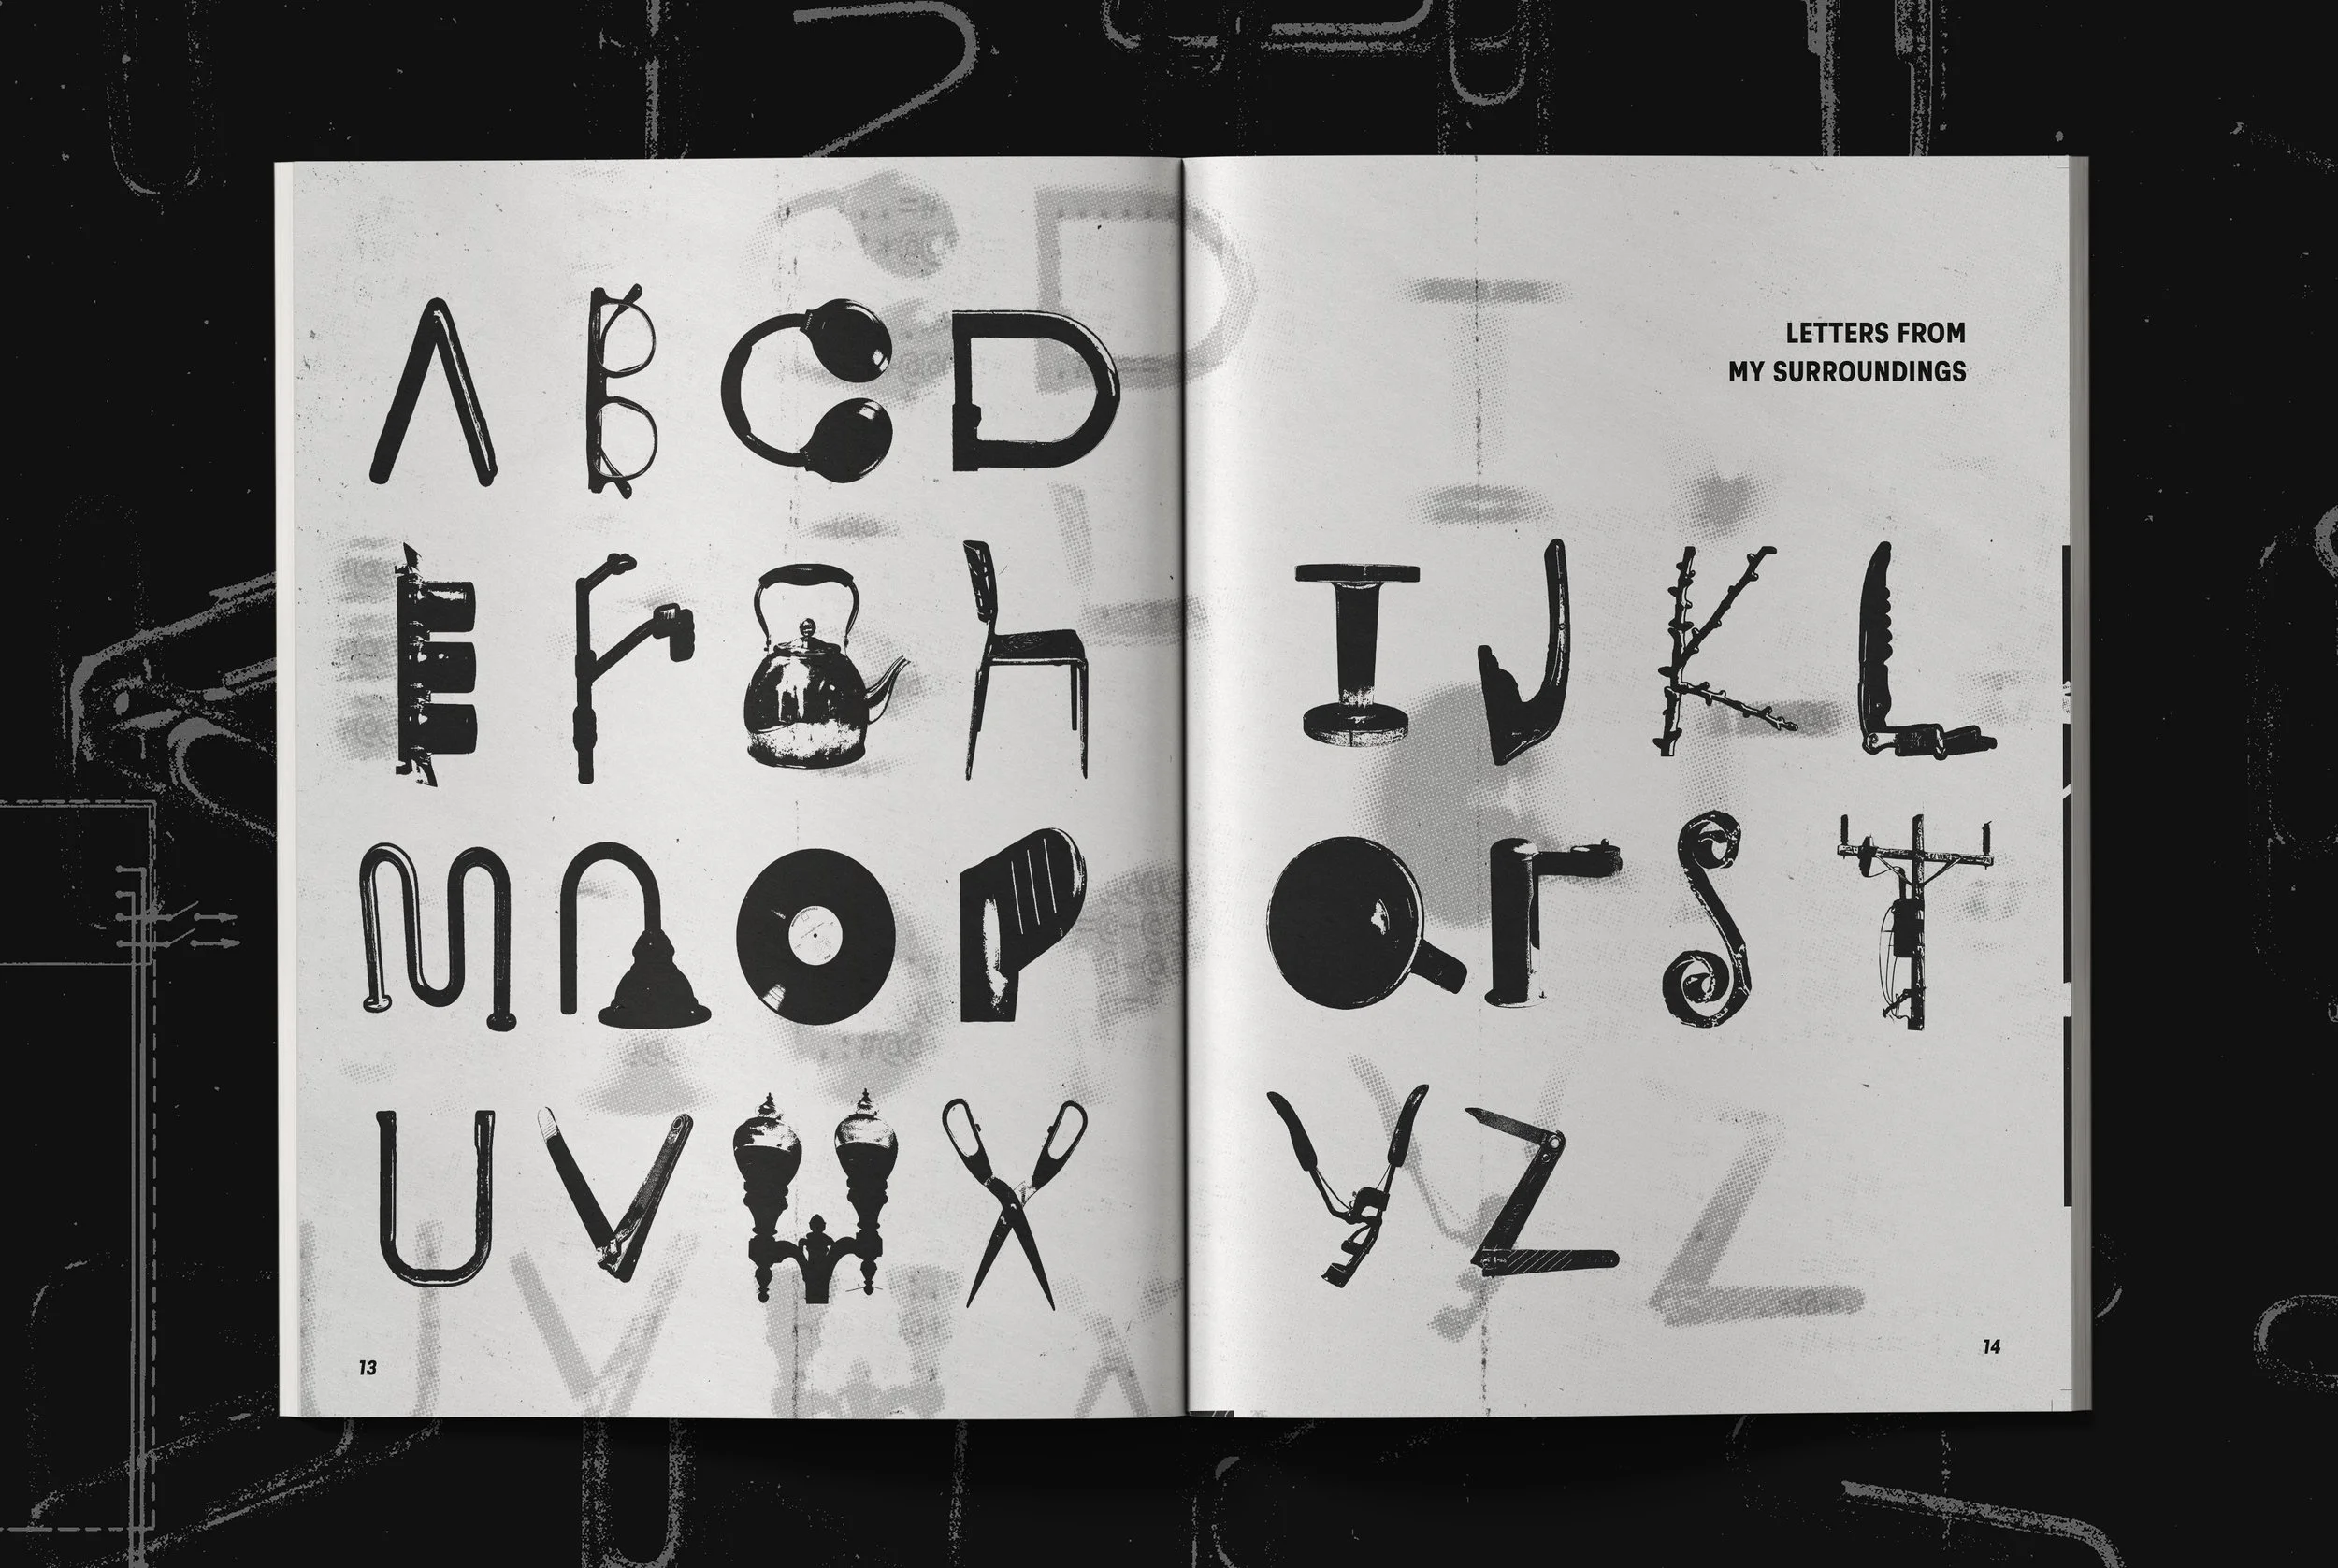 LETTERS FROM
MY SURROUNDINGS
A B C D
E F G H I J K L
M N O P Q R S T
U V W X Y Z
13
14